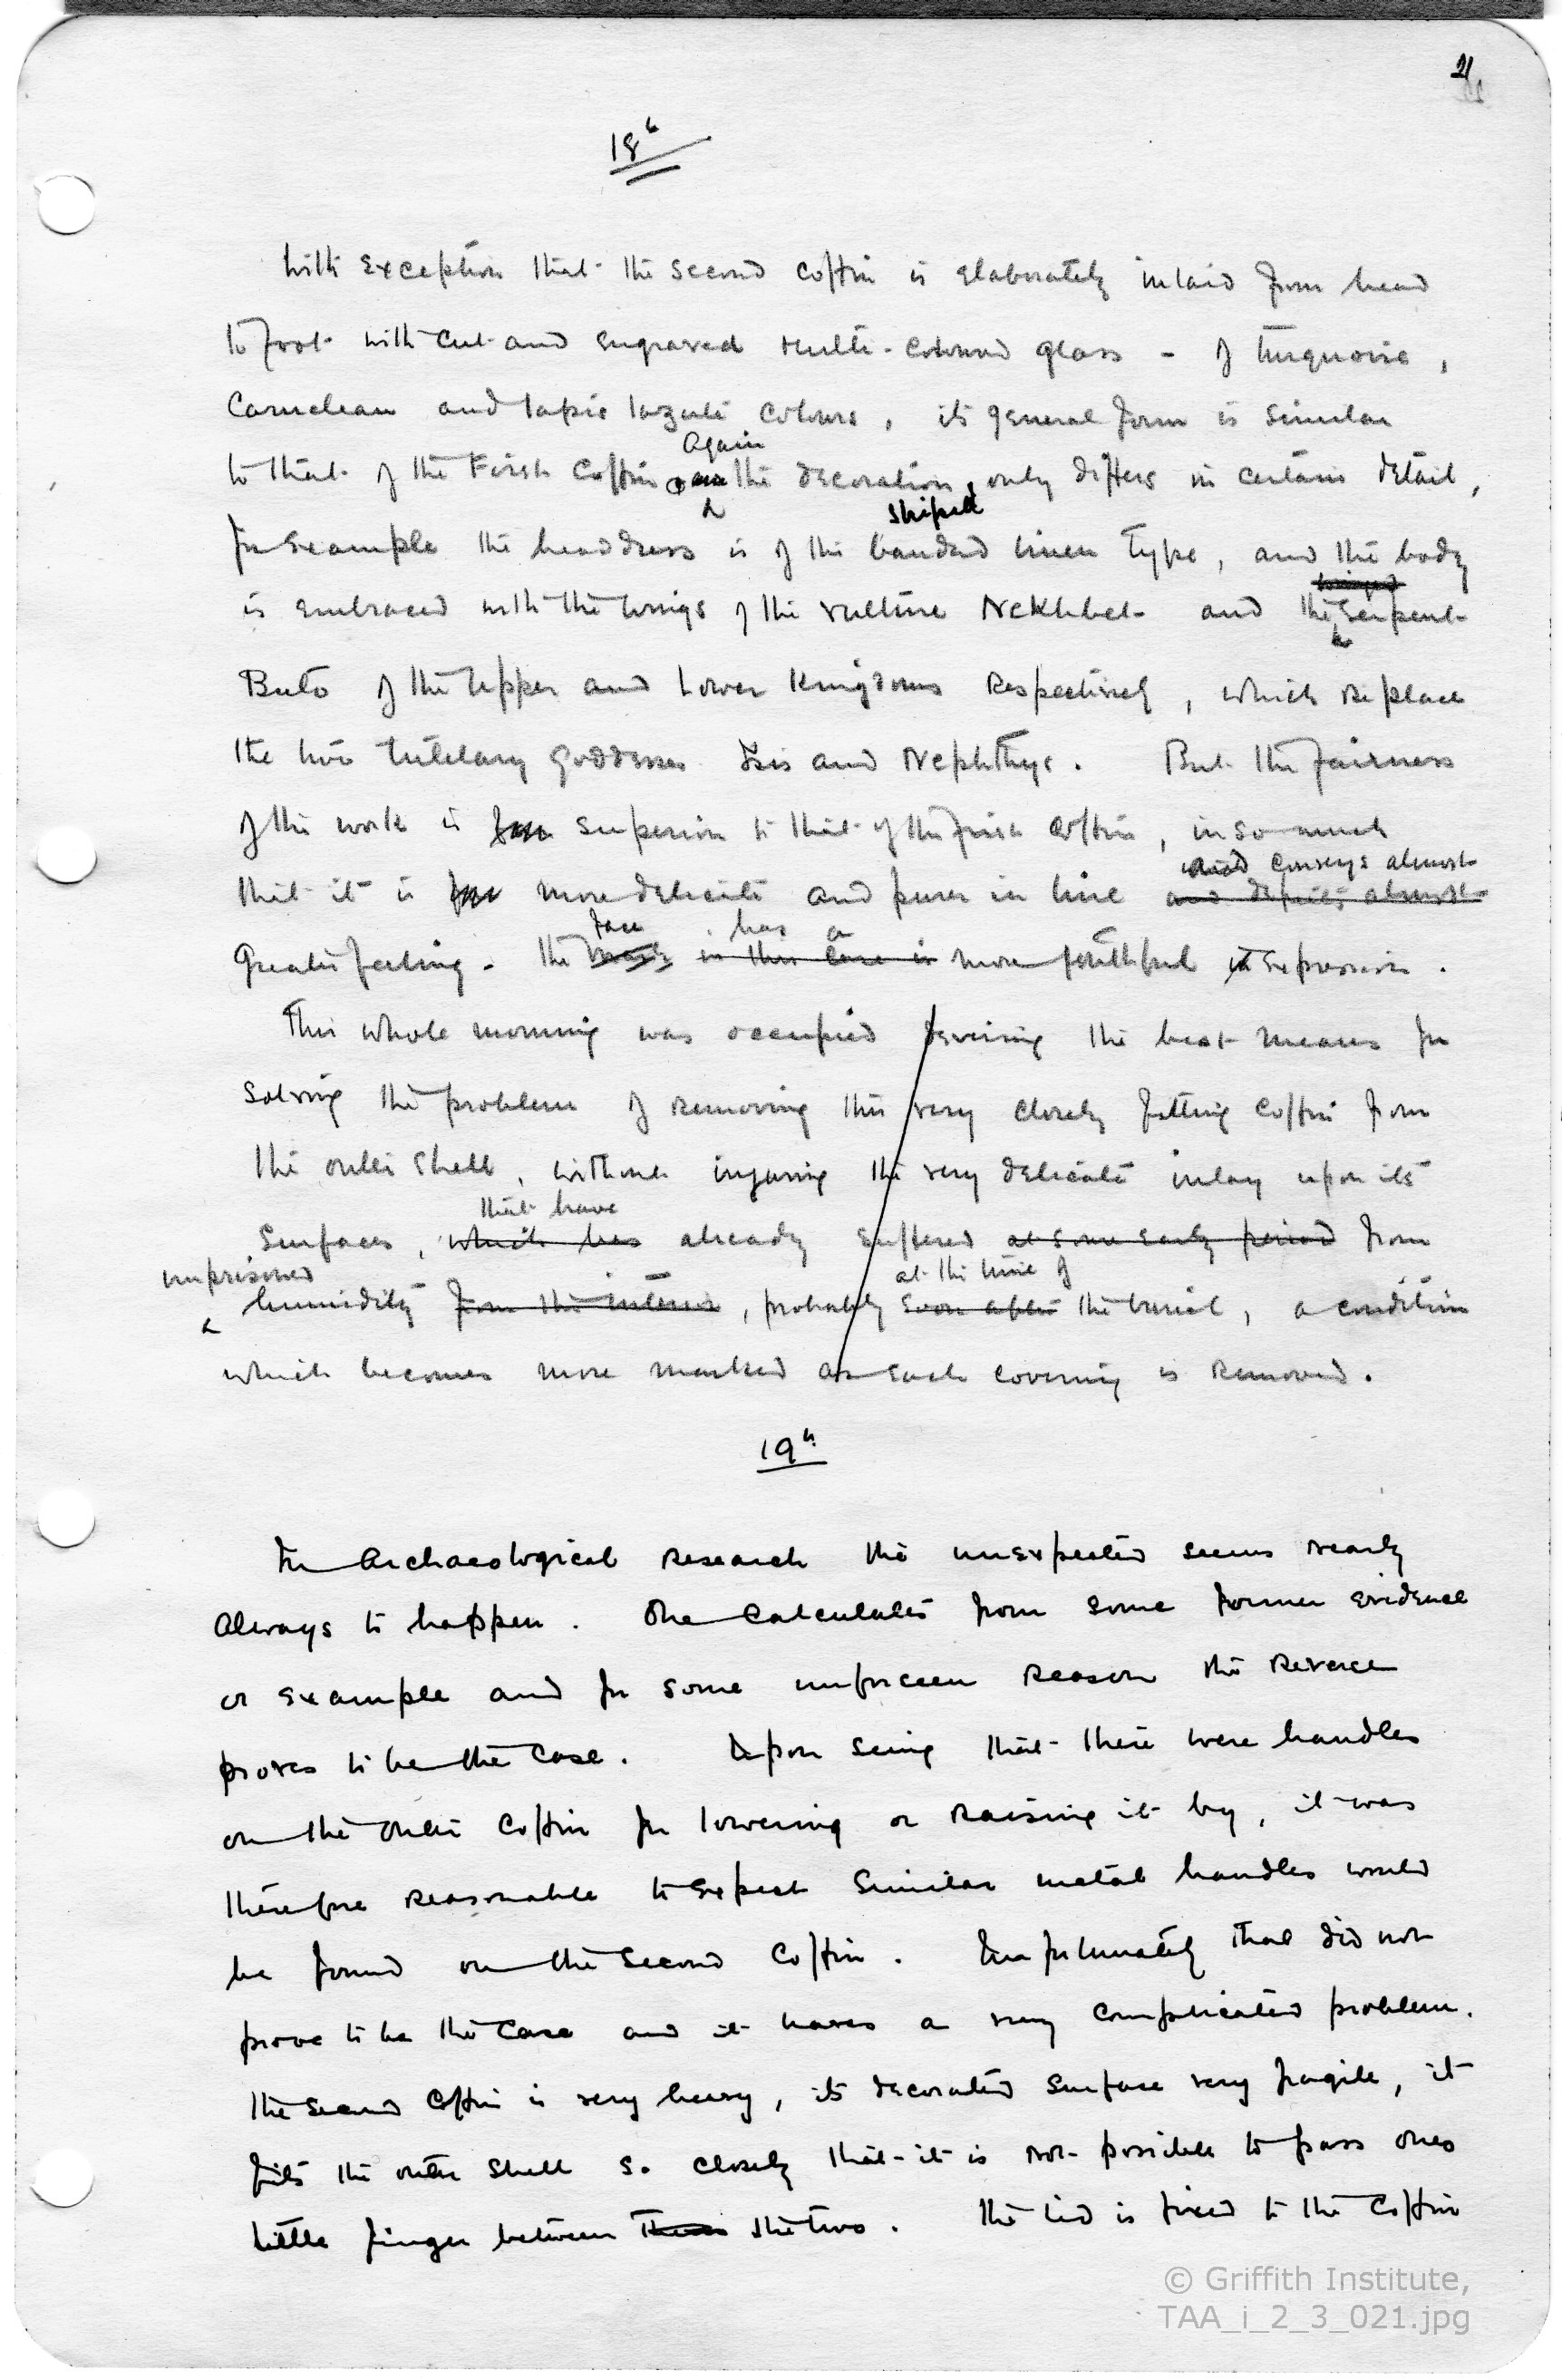 21
18th
With exception that the second coffin is elaborately inlaid from head
to foot with cut and engraved multi-coloured glass - of turquoise,
carnelean and lapis lazuli colours, its general form is similar
Again
to that of the First Coffin. the decoration, only differs in certain detail,
striped
for example the headdress is of the banded linen type, and the body
winged
is embraced with the wings of the vulture Nekhbet and the serpent
Buto of the Upper and Lower Kingdoms respectively, which replace
the two tutelary goddesses Isis and Nephthys. But the fairness
of the work is far superior to that of the first coffin, in so much
and conveys almost
that it is far more delicate and purer in line and depicts almost
face has a
greater feeling - the mask in this case is more youthful in expression.
This whole morning was occupied devising the best means for
solving the problem of removing this very closely fitting coffin from
the outer shell, without injuring the very delicate inlay upon its
that have
surfaces, which has already suffered at some early period from
imprisoned at the time of
humidity from the interior, probably soon after the burial, a condition
which becomes more marked as each covering is removed.
19th
In Archaeological research the unexpected seems nearly
always to happen. One calculates from some former evidence
or example and for some unforseen reason the reverse
proves to be the case. Upon seeing that there were handles
on the outer coffin for lowering or raising it by, it was
therefore reasonable to expect similar metal handles would
be found on the second coffin. Unfortunately that did not
prove to be the case and it leaves a very complicated problem.
The second coffin is very heavy, its decorated surface very fragile, it
fits the outer shell so closely that it is not possible to pass ones
little finger between them the two. The lid is fixed to the coffin
© Griffith Institute,
TAA_i_2_3_021.jpg